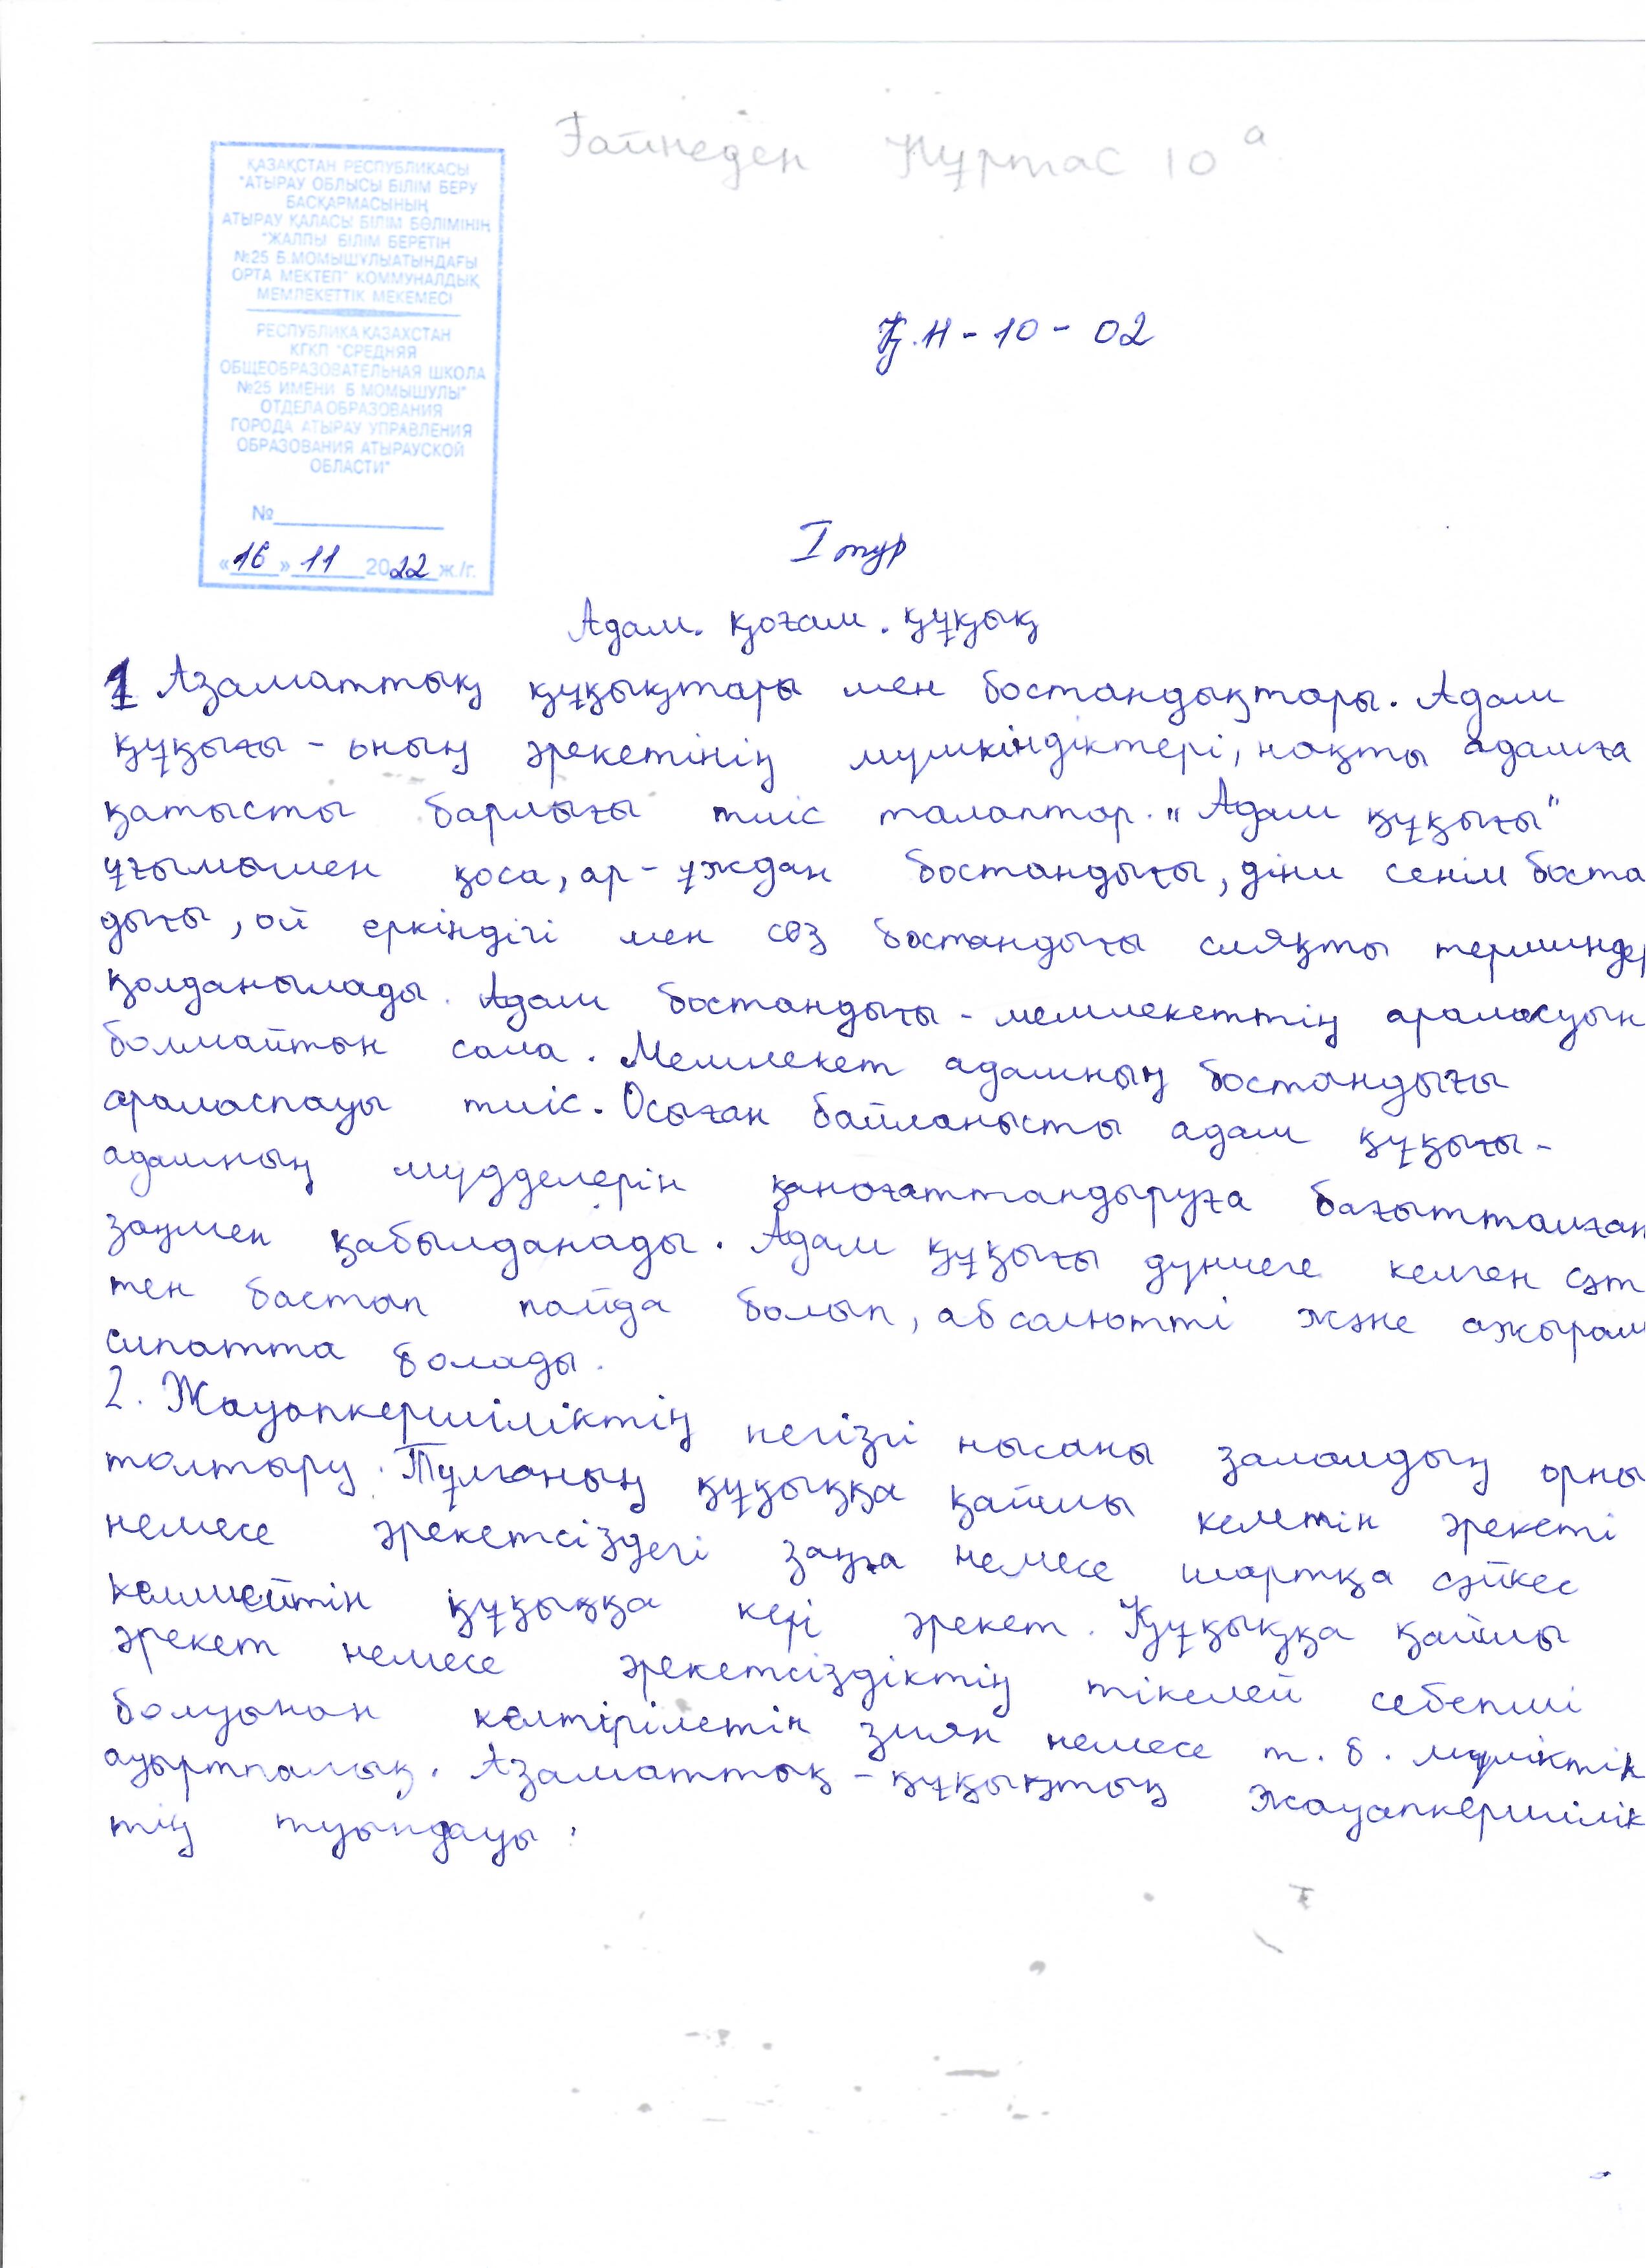 Ғайнеден Нұртас 10 а
ҚАЗАҚСТАН РЕСПУБЛИКАСЫ
"АТЫРАУ ОБЛЫСЫ БІЛІМ БЕРУ
БАСҚАРМАСЫНЫҢ
АТЫРАУ ҚАЛАСЫ БІЛІМ БӨЛІМІНІҢ
"ЖАЛПЫ БІЛІМ БЕРЕТІН
№25 Б.МОМЫШҰЛЫАТЫНДАҒЫ
ОРТА МЕКТЕП" КОММУНАЛДЫҚ
МЕМЛЕКЕТТІК МЕКЕМЕСІ
РЕСПУБЛИКА КАЗАХСТАН
КГКП "СРЕДНЯЯ
ОБЩЕОБРАЗОВАТЕЛЬНАЯ ШКОЛА
№25 ИМЕНИ Б МОМЫШУЛЫ"
ОТДЕЛА ОБРАЗОВАНИЯ
ГОРОДА АТЫРАУ УПРАВЛЕНИЯ
ОБРАЗОВАНИЯ АТЫРАУСКОЙ
ОБЛАСТИ"
№
«16» 11 2022 ж./г.
Қ.Н-10-02
I тур
Адам. қоғам. құқық
1 Азаматтық құқықтары мен бостандықтары. Адам
құқығы - оның әрекетінің мүмкіндіктері, нақты адамға
қатысты барлығы тиіс талаптар. "Адам құқығы"
ұғымымен қоса, ар-ұждан бостандығы, діни сенім боста
дығы, ой еркіндігі мен сөз бостандығы сияқты терминдер
қолданылады. Адам бостандығы - мемлекеттің араласуын
болмайтын сала. Мемлекет адамның бостандығы
араласпауы тиіс. Осыған байланысты адам құқығы -
адамның мүдделерін қанағаттандыруға бағытталған
заңмен қабылданады. Адам құқығы дүниеге келген сәт
тен бастап пайда болып, абсалютті және ажырам
сипатта болады.
2. Жауапкершіліктің негізгі нысаны залалдың орны
толтыру. Тұлғаның құқыққа қайшы келетін әрекеті
немесе әрекетсіздегі заңға немесе шартқа сәйкес
келмейтін құқыққа кері әрекет. Құқыққа қайшы
әрекет немесе әрекетсіздіктің тікелей себепші
болуынан келтірілетін зиян немесе т.б. мүліктік
ауыртпалық. Азаматтық - құқықтық жауапкершілік
тің туындауы: